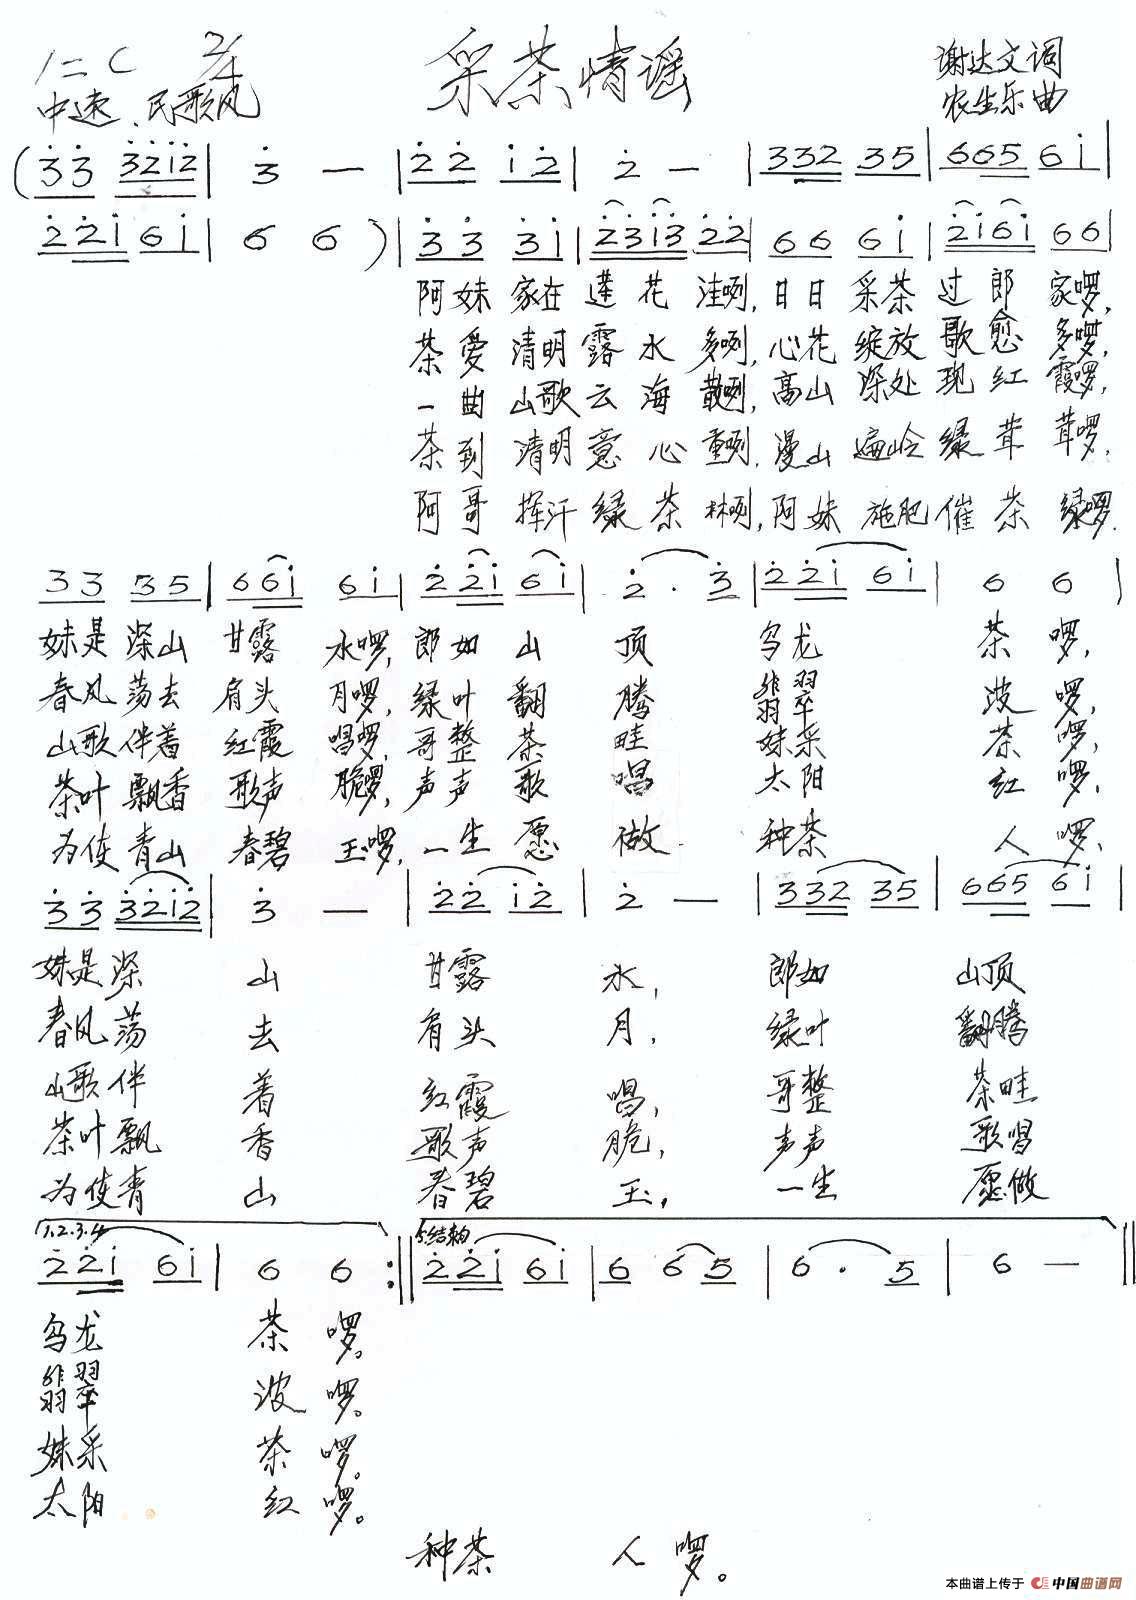 采茶情谣
1=C 2/4
谢达文词
中速、民歌风
农生乐曲
(3̇3̇ 3̇2̇1̇2̇ | 3̇ — | 2̇2̇ 1̇2̇ | 2̇ — | 332 35 | 665 61̇ |
2̇2̇1̇ 61̇ | 6 6 ) | 3̇3̇ 3̇1̇ | 2̇3̇1̇3̇ 2̇2̇ | 66 61̇ | 2̇1̇61̇ 66 |
阿妹家在莲花洼咧,日日采茶过郎家啰,
茶爱清明露水多咧,心花绽放歌愈多啰,
一曲山歌云海散咧,高山深处现红霞啰,
茶到清明意心重咧,漫山遍岭绿茸茸啰,
阿哥挥汗绿茶林咧,阿妹施肥催茶绿啰.
33 35 | 661̇ 61̇ | 2̇2̇1̇ 61̇ | 2̇ · 3̇ | 2̇2̇1̇ 61̇ | 6 6 |
妹是深山甘露水啰,郎如山顶乌龙茶啰,
春风荡去肩头月啰,绿叶翻腾翡翠波啰,
山歌伴着红霞唱啰,哥整茶畦妹采茶啰,
茶叶飘香歌声脆啰,声声歌唱太阳红啰,
为使青山春碧玉啰,一生愿做种茶人啰、
3̇3̇ 3̇2̇1̇2̇ | 3̇ — | 2̇2̇ 1̇2̇ | 2̇ — | 332 35 | 665 61̇ |
妹是深山甘露水,郎如山顶
春风荡去肩头月,绿叶翻腾
山歌伴着红霞唱,哥整茶畦
茶叶飘香歌声脆,声声歌唱
为使青山春碧玉,一生愿做
1.2.3.4 5.结束句
2̇2̇1̇ 61̇ | 6 6 :‖ 2̇2̇1̇ 61̇ | 6 65 | 6 · 5 | 6 — ‖
乌龙茶啰。
翡翠波啰。
妹采茶啰。
太阳红啰。
种茶人啰。
本曲谱上传于 中国曲谱网